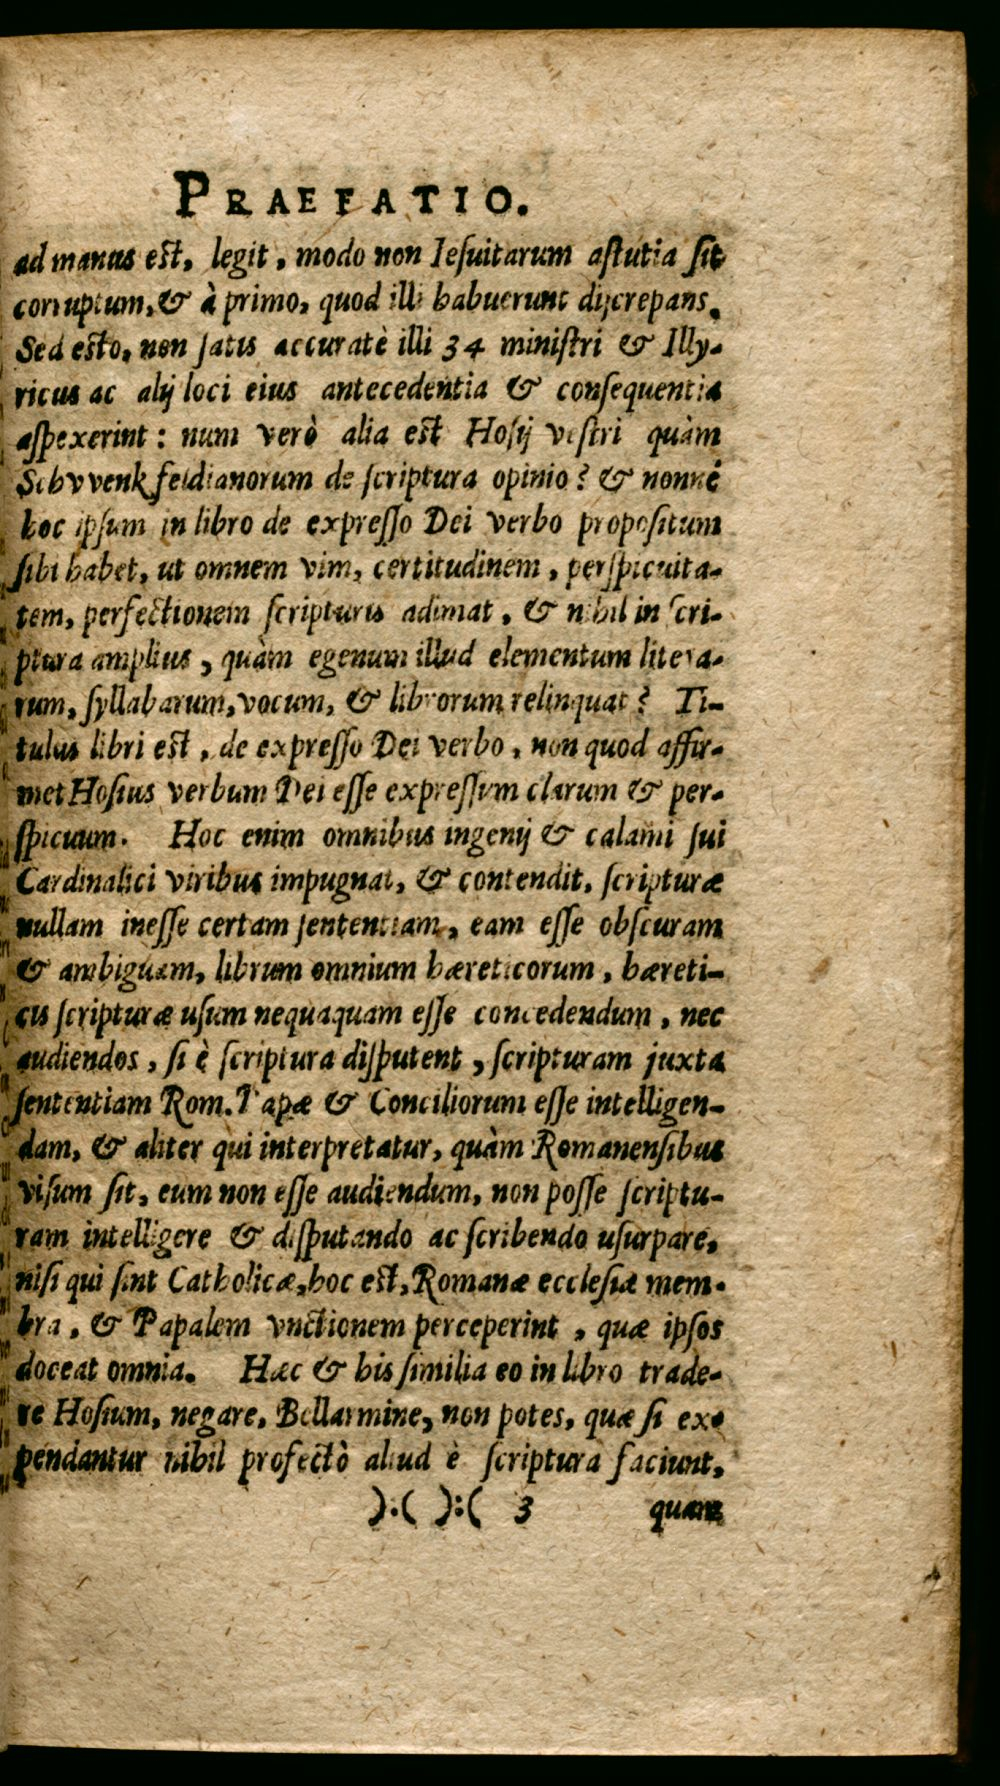 PRAEFATIO.
ad manus est, legit, modo non Iesuitarum astutia sit
corruptum, & à primo, quod illi habuerunt discrepans.
Sed esto, non satis accuratè illi 34 ministri & Illy-
ricus ac alij loci eius antecedentia & consequentia
aspexerint: num verò alia est Hosij vestri quàm
Schvvenkfeldianorum de scriptura opinio? & nonné
hoc ipsum in libro de expresso Dei verbo propositum
sibi habet, ut omnem vim, certitudinem, perspicuita-
tem, perfectionem scripturis adimat, & nihil in scri-
ptura amplius, quàm egenum illud elementum litera-
rum, syllabarum, vocum, & librorum relinquat? Ti-
tulus libri est, de expresso Dei verbo, non quod affir-
met Hosius verbum Dei esse expressum clarum & per-
spicuum. Hoc enim omnibus ingenij & calami sui
Cardinalici viribus impugnat, & contendit, scripturæ
nullam inesse certam sententiam, eam esse obscuram
& ambiguam, librum omnium hæreticorum, hæreti-
cis scripturæ usum nequaquam esse concedendum, nec
audiendos, si è scriptura disputent, scripturam juxta
sententiam Rom. Papæ & Conciliorum esse intelligen-
dam, & aliter qui interpretatur, quàm Romanensibus
visum sit, eum non esse audiendum, non posse scriptu-
ram intelligere & disputando ac scribendo usurpare,
nisi qui sint Catholicæ, hoc est, Romanæ ecclesiæ mem-
bra, & Papalem vnctionem perceperint, quæ ipsos
doceat omnia. Hæc & his similia eo in libro trade-
re Hosium, negare, Bellarmine, non potes, quæ si ex-
pendantur nihil profectò aliud è scriptura faciunt,
):( ):( 3 quam